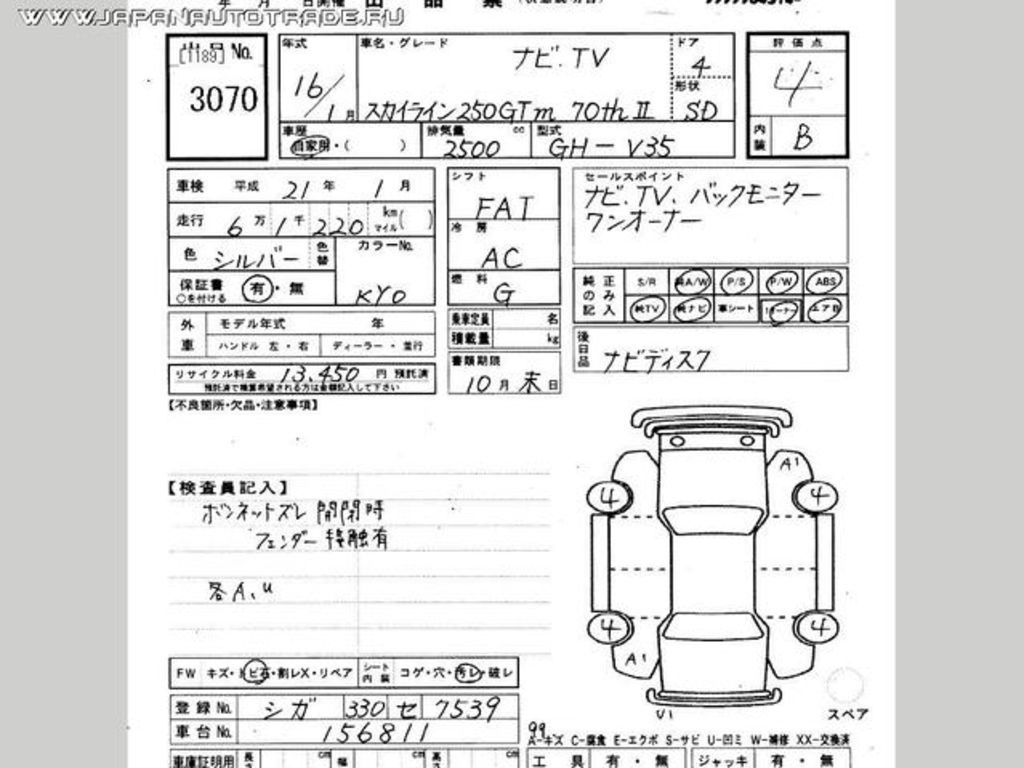 WWW.JAPANAUTOTRADE.RU
年 月 日開催 出 品 票
[1189] No.
3070
年式
16/1月
車名・グレード
ナビ.TV
スカイライン250GTm 70th II
ドア
4
形状
SD
評価点
4
内装 B
車歴
自家用・( )
排気量 cc
2500
型式
GH-V35
車検 平成 21年 1月
走行 6万1千220 km マイル( )
色 シルバー 色替
カラーNo.
KY0
保証書 有・無
○を付ける
シフト
FAT
冷房
AC
燃料
G
セールスポイント
ナビ.TV、バックモニター
ワンオーナー
純正のみ記入 S/R 純A/W P/S P/W ABS
純TV 純ナビ 革シート 1オーナー エアB
外車 モデル年式 年
ハンドル 左・右 ディーラー・並行
乗車定員 名
積載量 kg
後日品 ナビディスク
リサイクル料金 13,450 円 預託済
預託済で精算希望される方は金額記入して下さい
書類期限
10月末日
【不良箇所・欠品・注意事項】
【検査員記入】
ボンネットズレ 開閉時
フェンダー接触有
各A、U
A1
4 4
4 4
A1
U1
スペア
FW キズ・トビ石・割レX・リペア シート内装 コゲ・穴・汚レ・破レ
登録No. シガ 330 セ 7539
車台No. 156811
99
A-キズ C-腐食 E-エクボ S-サビ U-凹ミ W-補修 XX-交換済
車庫証明用 長さ cm 幅 cm 高さ cm
工具 有・無 ジャッキ 有・無